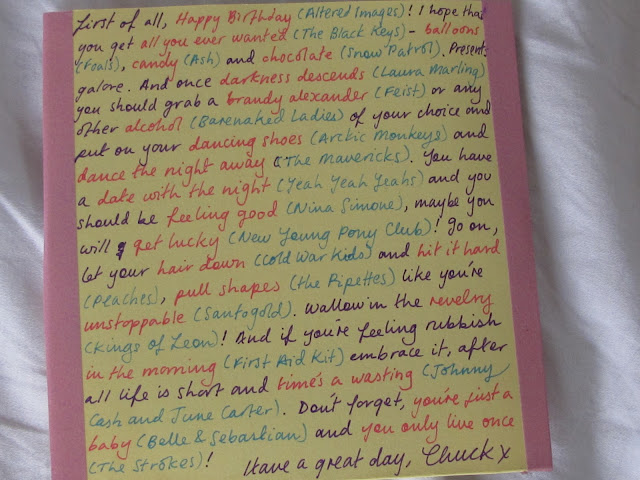 First of all, Happy Birthday (Altered Images)! I hope that
you get all you ever wanted (The Black Keys) - balloons
(Foals), candy (Ash) and chocolate (Snow Patrol). Presents
galore. And once darkness descends (Laura Marling)
you should grab a brandy alexander (Feist) or any
other alcohol (Barenaked Ladies) of your choice and
put on your dancing shoes (Arctic Monkeys) and
dance the night away (The Mavericks). You have
a date with the night (Yeah Yeah Yeahs) and you
should be feeling good (Nina Simone), maybe you
will get lucky (New Young Pony Club)! Go on,
let your hair down (Cold War Kids) and hit it hard
(Peaches), pull shapes (the Pipettes) like you're
unstoppable (Santogold). Wallow in the revelry
(Kings of Leon)! And if you're feeling rubbish
in the morning (First Aid Kit) embrace it, after
all life is short and time's a wasting (Johnny
Cash and June Carter). Don't forget, you're just a
baby (Belle & Sebastian) and you only live once
(The Strokes)! Have a great day, Chuck x